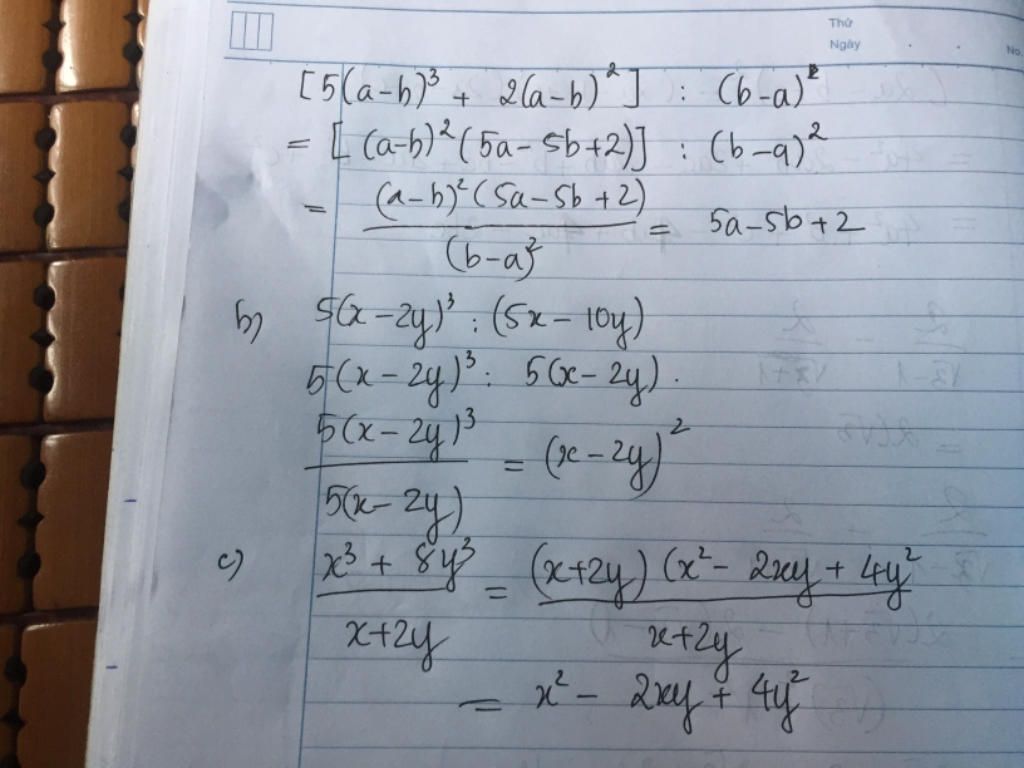 Thứ
Ngày . . No
[5(a-b)³ + 2(a-b)²] : (b-a)²
= [(a-b)²(5a-5b+2)] : (b-a)²
= \frac{(a-b)²(5a-5b+2)}{(b-a)²} = 5a-5b+2
b) 5(x-2y)³ : (5x-10y)
5(x-2y)³ : 5(x-2y).
\frac{5(x-2y)³}{5(x-2y)} = (x-2y)²
c) \frac{x³ + 8y³}{x+2y} = \frac{(x+2y)(x² - 2xy + 4y²}{x+2y}
= x² - 2xy + 4y²